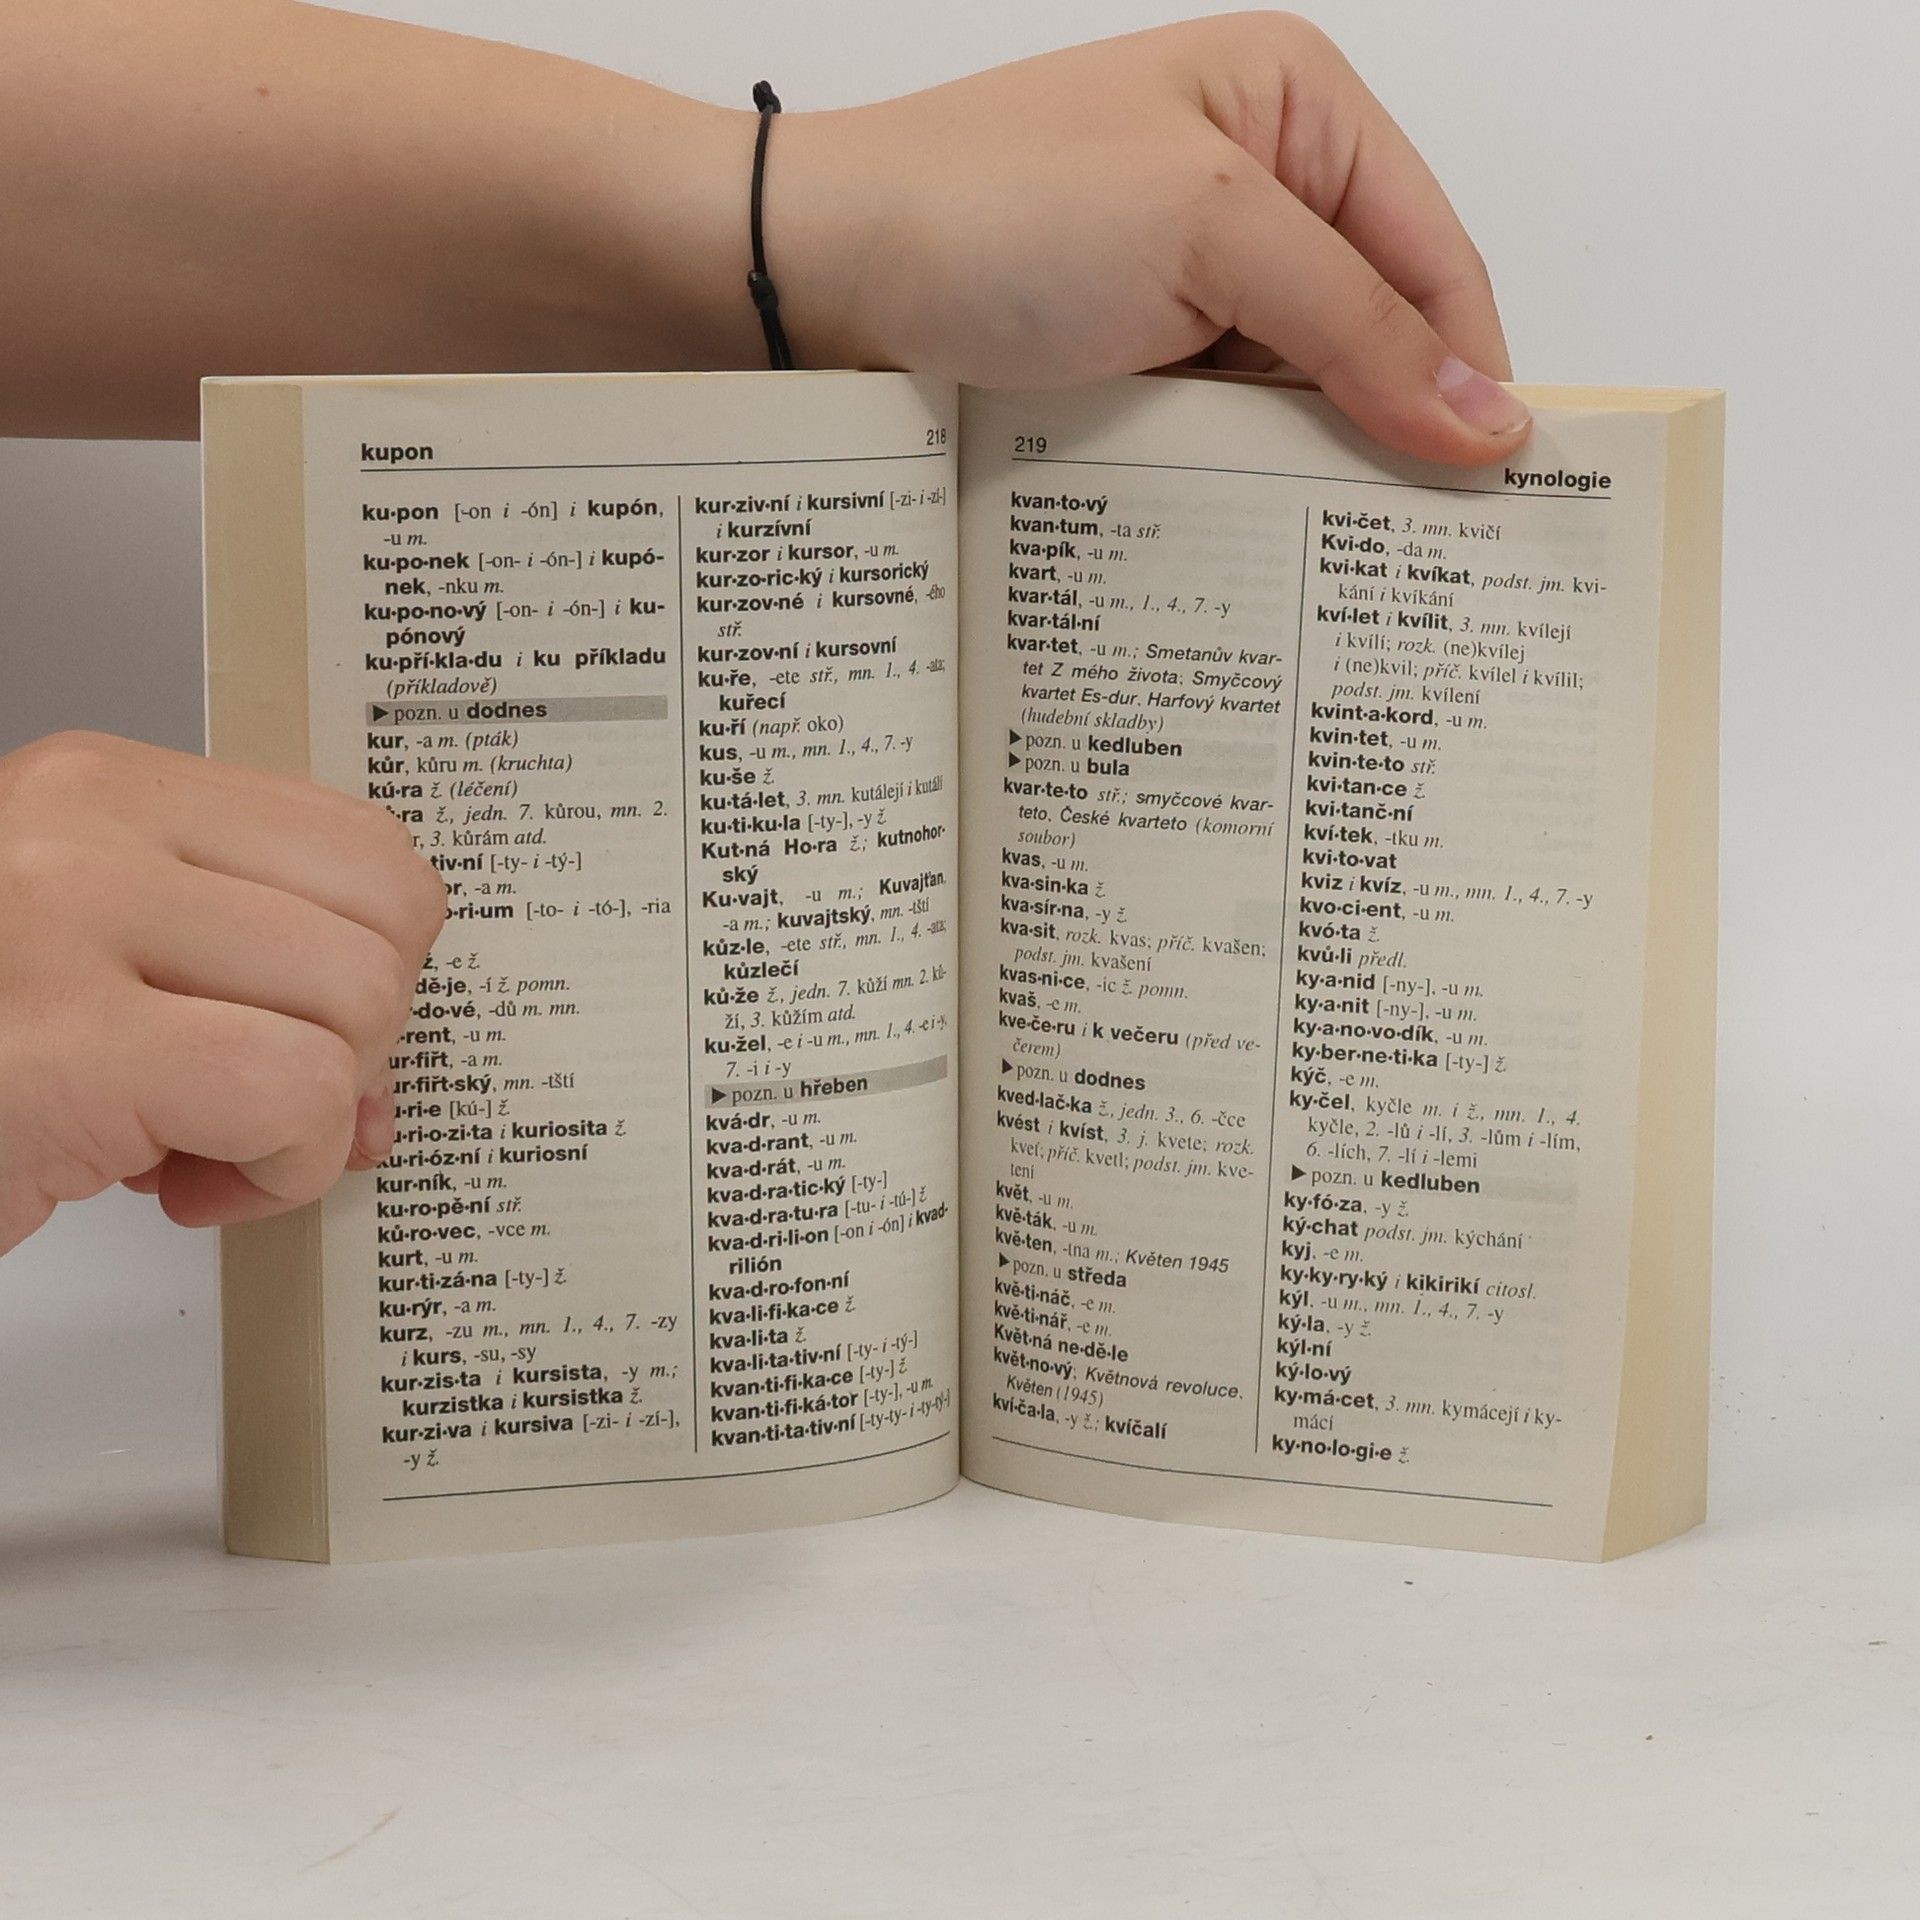 kupon
218
ku·pon [-on i -ón] i kupón,
-u m.
ku·po·nek [-on- i -ón-] i kupó-
nek, -nku m.
ku·po·no·vý [-on- i -ón-] i ku-
pónový
ku·pří·kla·du i ku příkladu
(příkladově)
▶ pozn. u dodnes
kur, -a m. (pták)
kůr, kůru m. (kruchta)
kú·ra ž. (léčení)
·ra ž., jedn. 7. kůrou, mn. 2.
r, 3. kůrám atd.
tiv·ní [-ty- i -tý-]
or, -a m.
o·ri·um [-to- i -tó-], -ria
ž, -e ž.
dě·je, -í ž. pomn.
·do·vé, -dů m. mn.
·rent, -u m.
ur·fiřt, -a m.
ur·fiřt·ský, mn. -tští
u·ri·e [kú-] ž.
u·ri·o·zi·ta i kuriosita ž.
ku·ri·óz·ní i kuriosní
kur·ník, -u m.
ku·ro·pě·ní stř.
ků·ro·vec, -vce m.
kurt, -u m.
kur·ti·zá·na [-ty-] ž.
ku·rýr, -a m.
kurz, -zu m., mn. 1., 4., 7. -zy
i kurs, -su, -sy
kur·zis·ta i kursista, -y m.;
kurzistka i kursistka ž.
kur·zi·va i kursiva [-zi- i -zí-],
-y ž.
kur·ziv·ní i kursivní [-zi- i -zí-]
i kurzívní
kur·zor i kursor, -u m.
kur·zo·ric·ký i kursorický
kur·zov·né i kursovné, -ého
stř.
kur·zov·ní i kursovní
ku·ře, -ete stř., mn. 1., 4. -ata;
kuřecí
ku·ří (např. oko)
kus, -u m., mn. 1., 4., 7. -y
ku·še ž.
ku·tá·let, 3. mn. kutálejí i kutálí
ku·ti·ku·la [-ty-], -y ž.
Kut·ná Ho·ra ž.; kutnohor-
ský
Ku·vajt, -u m.; Kuvajťan,
-a m.; kuvajtský, mn. -tští
kůz·le, -ete stř., mn. 1., 4. -ata;
kůzlečí
ků·že ž., jedn. 7. kůží mn. 2. ků-
ží, 3. kůžím atd.
ku·žel, -e i -u m., mn. 1., 4. -e i -y,
7. -i i -y
▶ pozn. u hřeben
kvá·dr, -u m.
kva·d·rant, -u m.
kva·d·rát, -u m.
kva·d·ra·tic·ký [-ty-]
kva·d·ra·tu·ra [-tu- i -tú-] ž.
kva·d·ri·li·on [-on i -ón] i kvad-
rilión
kva·d·ro·fon·ní
kva·li·fi·ka·ce ž.
kva·li·ta ž.
kva·li·ta·tiv·ní [-ty- i -tý-]
kvan·ti·fi·ka·ce [-ty-] ž.
kvan·ti·fi·ká·tor [-ty-], -u m.
kvan·ti·ta·tiv·ní [-ty-ty- i -ty-tý-]
219
kynologie
kvan·to·vý
kvan·tum, -ta stř.
kva·pík, -u m.
kvart, -u m.
kvar·tál, -u m., 1., 4., 7. -y
kvar·tál·ní
kvar·tet, -u m.; Smetanův kvar-
tet Z mého života; Smyčcový
kvartet Es-dur, Harfový kvartet
(hudební skladby)
▶ pozn. u kedluben
▶ pozn. u bula
kvar·te·to stř.; smyčcové kvar-
teto, České kvarteto (komorní
soubor)
kvas, -u m.
kva·sin·ka ž.
kva·sír·na, -y ž.
kva·sit, rozk. kvas; příč. kvašen;
podst. jm. kvašení
kvas·ni·ce, -ic ž. pomn.
kvaš, -e m.
kve·če·ru i k večeru (před ve-
čerem)
▶ pozn. u dodnes
kved·lač·ka ž., jedn. 3., 6. -čce
kvést i kvíst, 3. j. kvete; rozk.
kveť; příč. kvetl; podst. jm. kve-
tení
květ, -u m.
kvě·ták, -u m.
kvě·ten, -tna m.; Květen 1945
▶ pozn. u středa
kvě·ti·náč, -e m.
kvě·ti·nář, -e m.
Květ·ná ne·dě·le
květ·no·vý; Květnová revoluce,
Květen (1945)
kví·ča·la, -y ž.; kvíčalí
kvi·čet, 3. mn. kvičí
Kvi·do, -da m.
kvi·kat i kvíkat, podst. jm. kvi-
kání i kvíkání
kví·let i kvílit, 3. mn. kvílejí
i kvílí; rozk. (ne)kvílej
i (ne)kvil; příč. kvílel i kvílil;
podst. jm. kvílení
kvint·a·kord, -u m.
kvin·tet, -u m.
kvin·te·to stř.
kvi·tan·ce ž.
kvi·tanč·ní
kví·tek, -tku m.
kvi·to·vat
kviz i kvíz, -u m., mn. 1., 4., 7. -y
kvo·ci·ent, -u m.
kvó·ta ž.
kvů·li předl.
ky·a·nid [-ny-], -u m.
ky·a·nit [-ny-], -u m.
ky·a·no·vo·dík, -u m.
ky·ber·ne·ti·ka [-ty-] ž.
kýč, -e m.
ky·čel, kyčle m. i ž., mn. 1., 4.
kyčle, 2. -lů i -lí, 3. -lům i -lím,
6. -lích, 7. -lí i -lemi
▶ pozn. u kedluben
ky·fó·za, -y ž.
ký·chat podst. jm. kýchání
kyj, -e m.
ky·ky·ry·ký i kikirikí citosl.
kýl, -u m., mn. 1., 4., 7. -y
ký·la, -y ž.
kýl·ní
ký·lo·vý
ky·má·cet, 3. mn. kymácejí i ky-
mácí
ky·no·lo·gi·e ž.